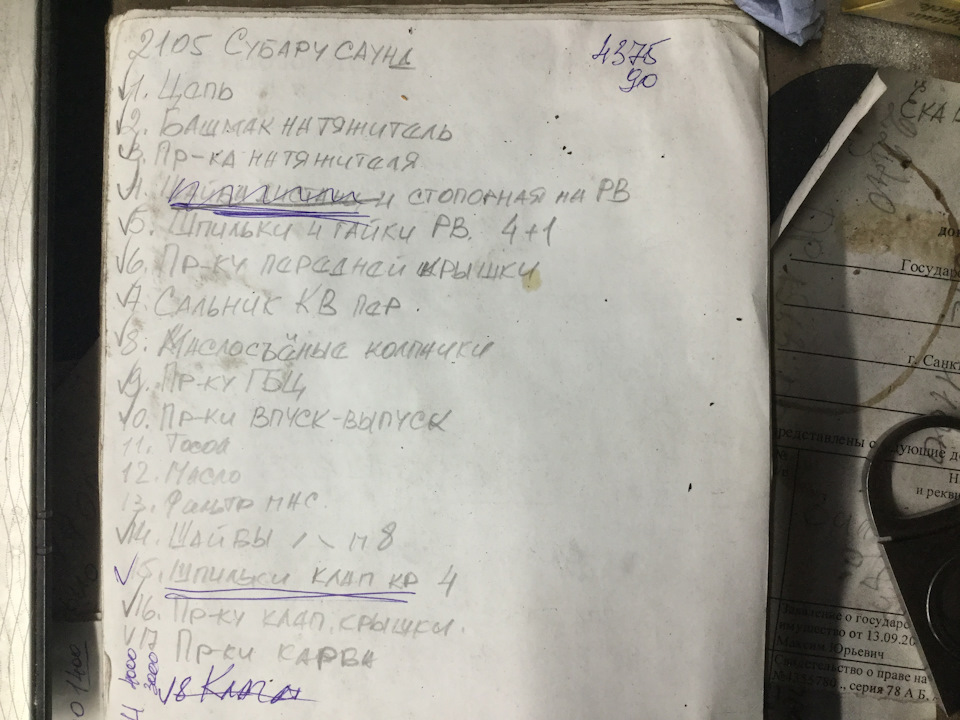 2105 СУБАРУ САУНД
4375
90
1. Цепь
2. БАШМАК НАТЯЖИТЕЛЬ
3. Пр-КА НАТЯЖИТЕЛЯ
4. И СТОПОРНАЯ НА РВ
5. ШПИЛЬКИ И ГАЙКИ РВ. 4+1
6. Пр-ку передней крышки
7. САЛЬНИК КВ пер.
8. Маслосъёные колпачки
9. Пр-ку ГБЦ
10. Пр-ки ВПУСК-ВЫПУСК
11. Тосол
12. Масло
13. Фильтр МАС.
14. ШАЙБЫ М8
15. ШПИЛЬКИ КЛАП КР 4
16. Пр-ку КЛАП. КРЫШКИ.
17 Пр-ки КАРБА
18
4000
3000
1400
СКА
Государс
г. Санкт
редставлены с ующие до
и рекви
Заявление о государс
имущество от 13.09.20
Максим Юрьевич
Свидетельство о праве на
., серия 78 А Б,